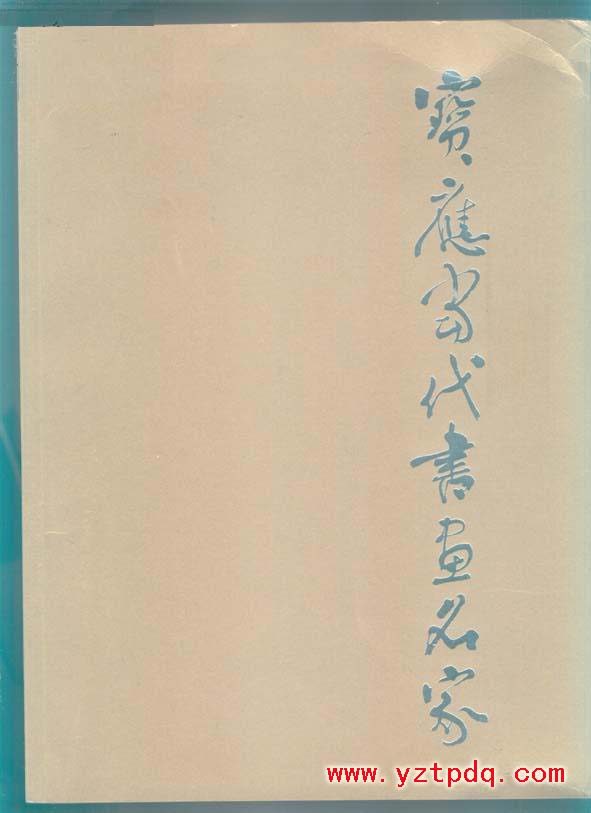 寶應當代書畫名家
www.yztpdq.com